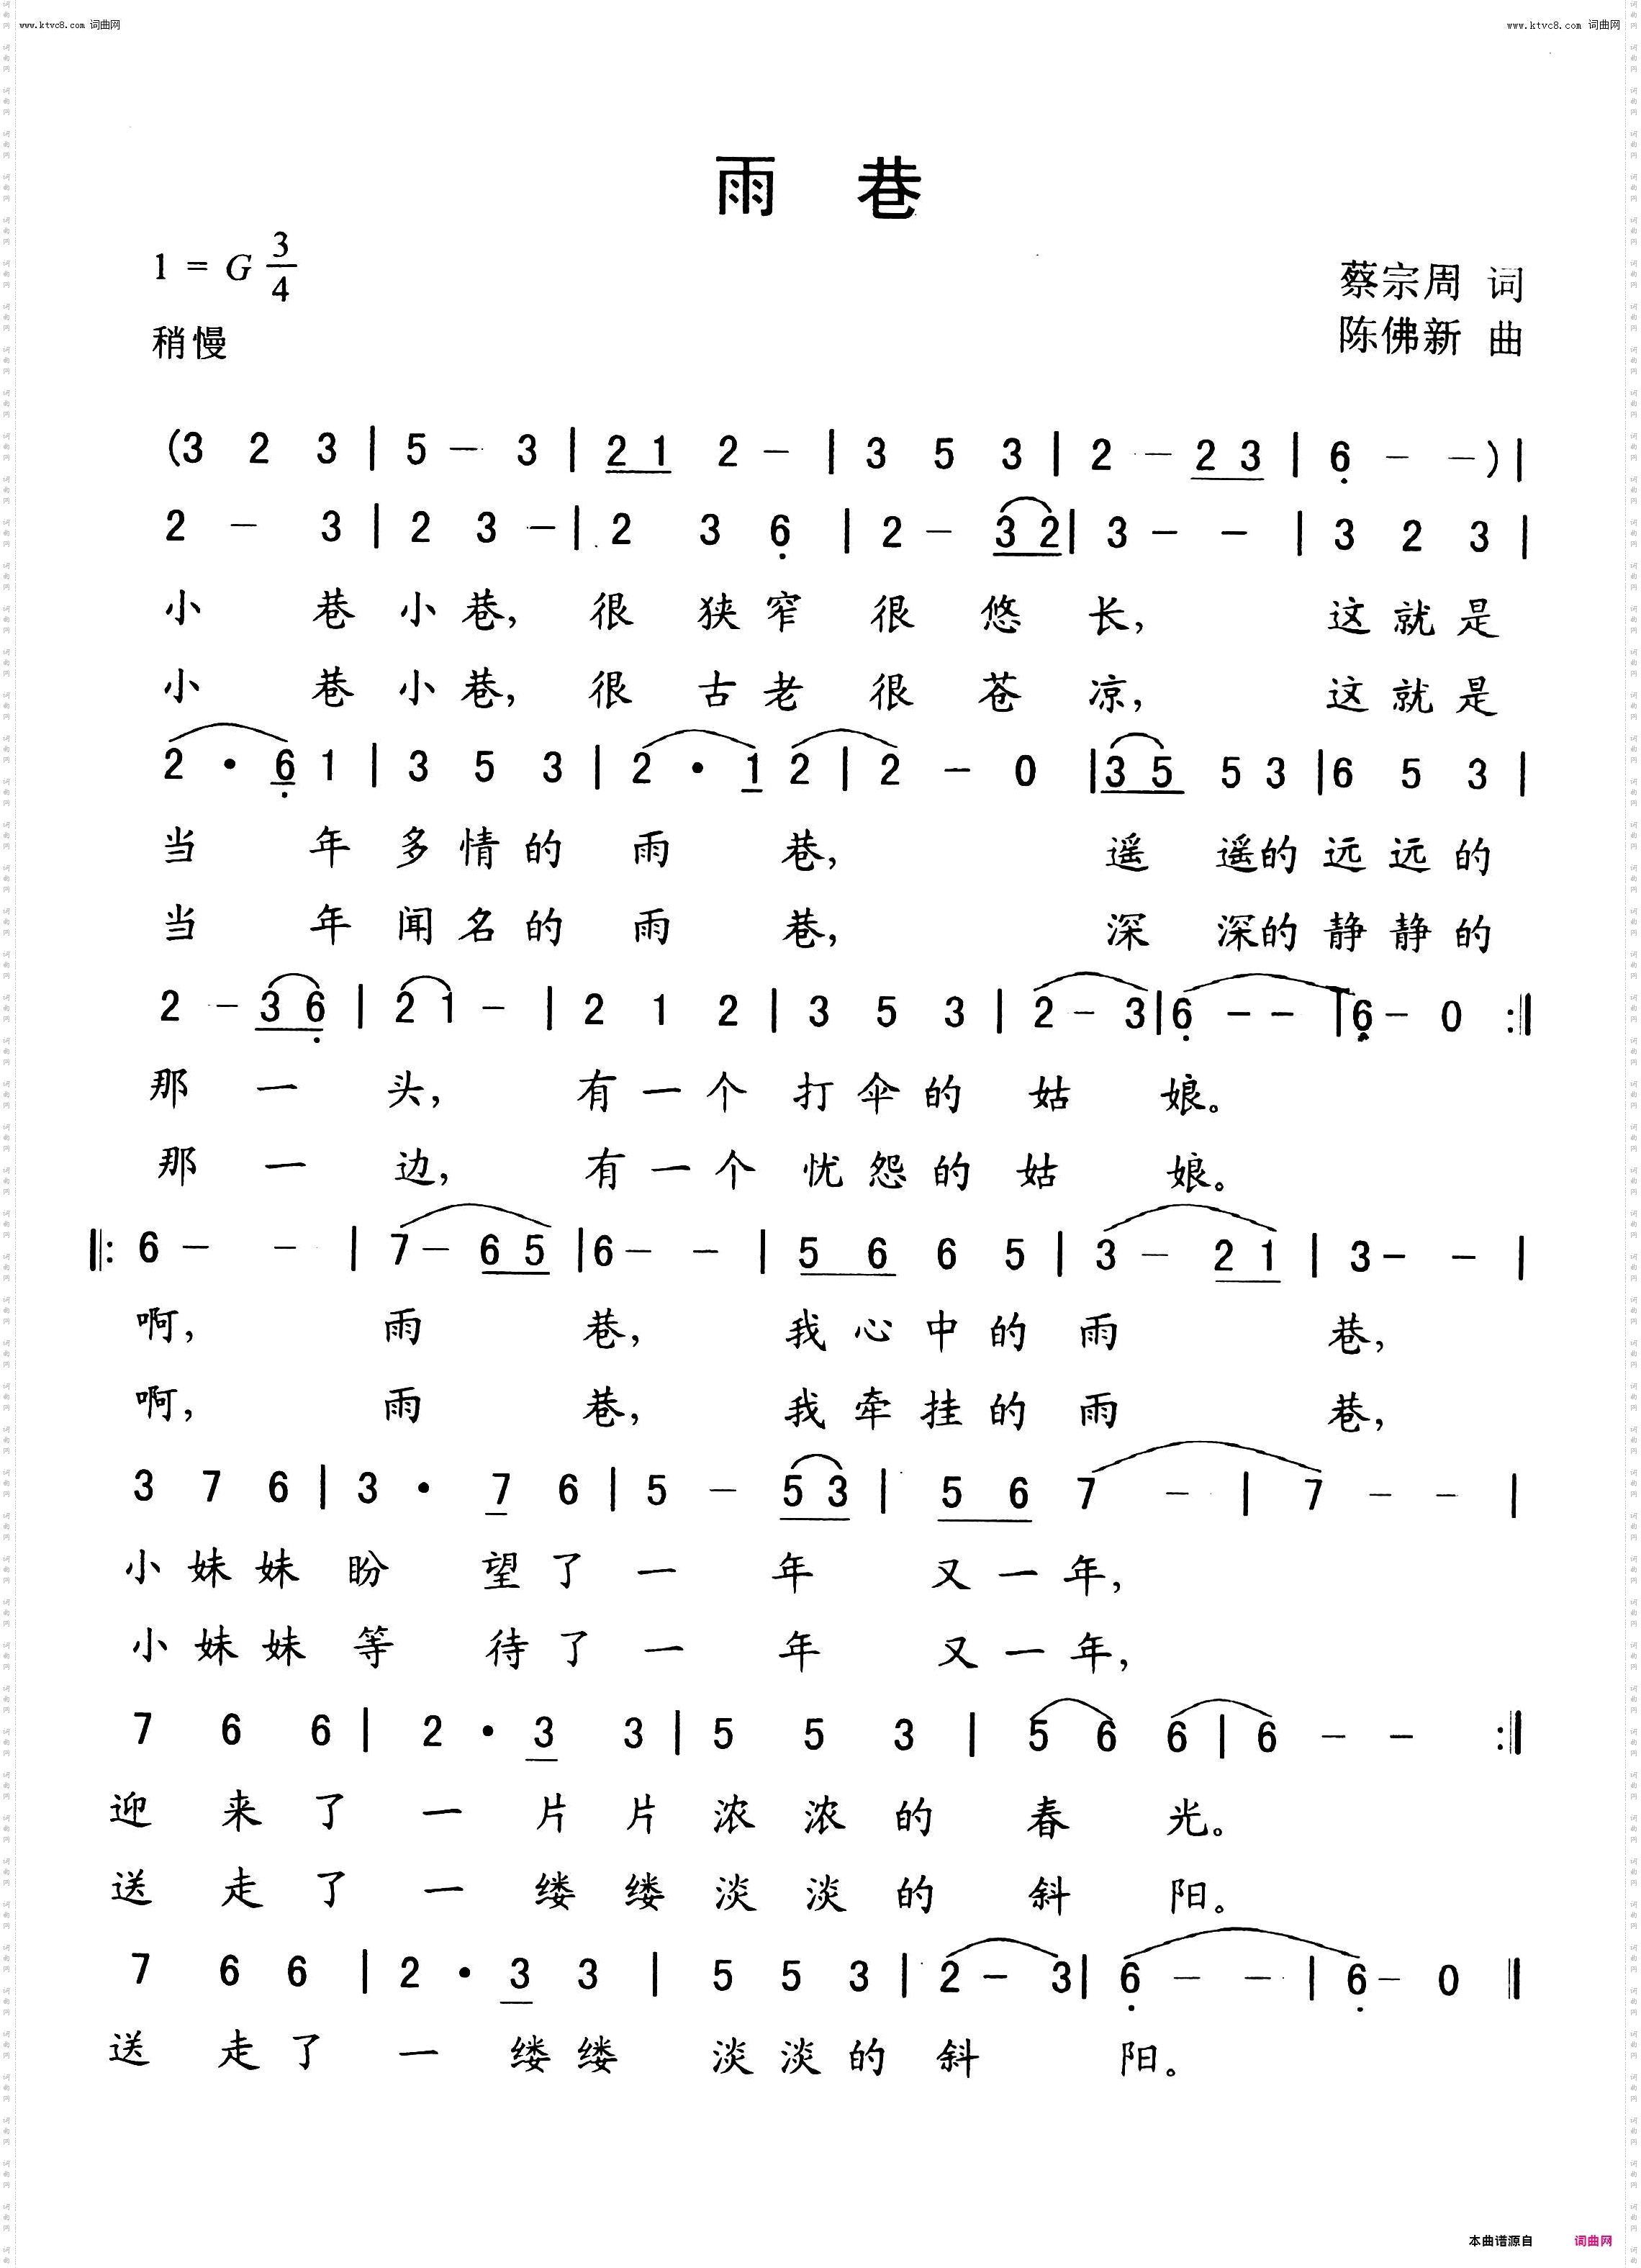 www.ktvc8.com 词曲网 www.ktvc8.com 词曲网
雨 巷
1 = G 3/4
蔡宗周 词
稍慢
陈佛新 曲
(3 2 3 | 5 — 3 | 2 1 2 — | 3 5 3 | 2 — 2 3 | 6 — —) |
2 — 3 | 2 3 — | 2 3 6 | 2 — 3 2 | 3 — — | 3 2 3 |
小 巷 小 巷, 很 狭 窄 很 悠 长, 这 就 是
小 巷 小 巷, 很 古 老 很 苍 凉, 这 就 是
2 · 6 1 | 3 5 3 | 2 · 1 2 | 2 — 0 | 3 5 5 3 | 6 5 3 |
当 年 多 情 的 雨 巷, 遥 遥 的 远 远 的
当 年 闻 名 的 雨 巷, 深 深 的 静 静 的
2 — 3 6 | 2 1 — | 2 1 2 | 3 5 3 | 2 — 3 | 6 — — | 6 — 0 :‖
那 一 头, 有 一 个 打 伞 的 姑 娘。
那 一 边, 有 一 个 忧 怨 的 姑 娘。
‖: 6 — — | 7 — 6 5 | 6 — — | 5 6 6 5 | 3 — 2 1 | 3 — — |
啊, 雨 巷, 我 心 中 的 雨 巷,
啊, 雨 巷, 我 牵 挂 的 雨 巷,
3 7 6 | 3 · 7 6 | 5 — 5 3 | 5 6 7 — | 7 — — |
小 妹 妹 盼 望 了 一 年 又 一 年,
小 妹 妹 等 待 了 一 年 又 一 年,
7 6 6 | 2 · 3 3 | 5 5 3 | 5 6 6 | 6 — — :‖
迎 来 了 一 片 片 浓 浓 的 春 光。
送 走 了 一 缕 缕 淡 淡 的 斜 阳。
7 6 6 | 2 · 3 3 | 5 5 3 | 2 — 3 | 6 — — | 6 — 0 ‖
送 走 了 一 缕 缕 淡 淡 的 斜 阳。
本曲谱源自 词曲网